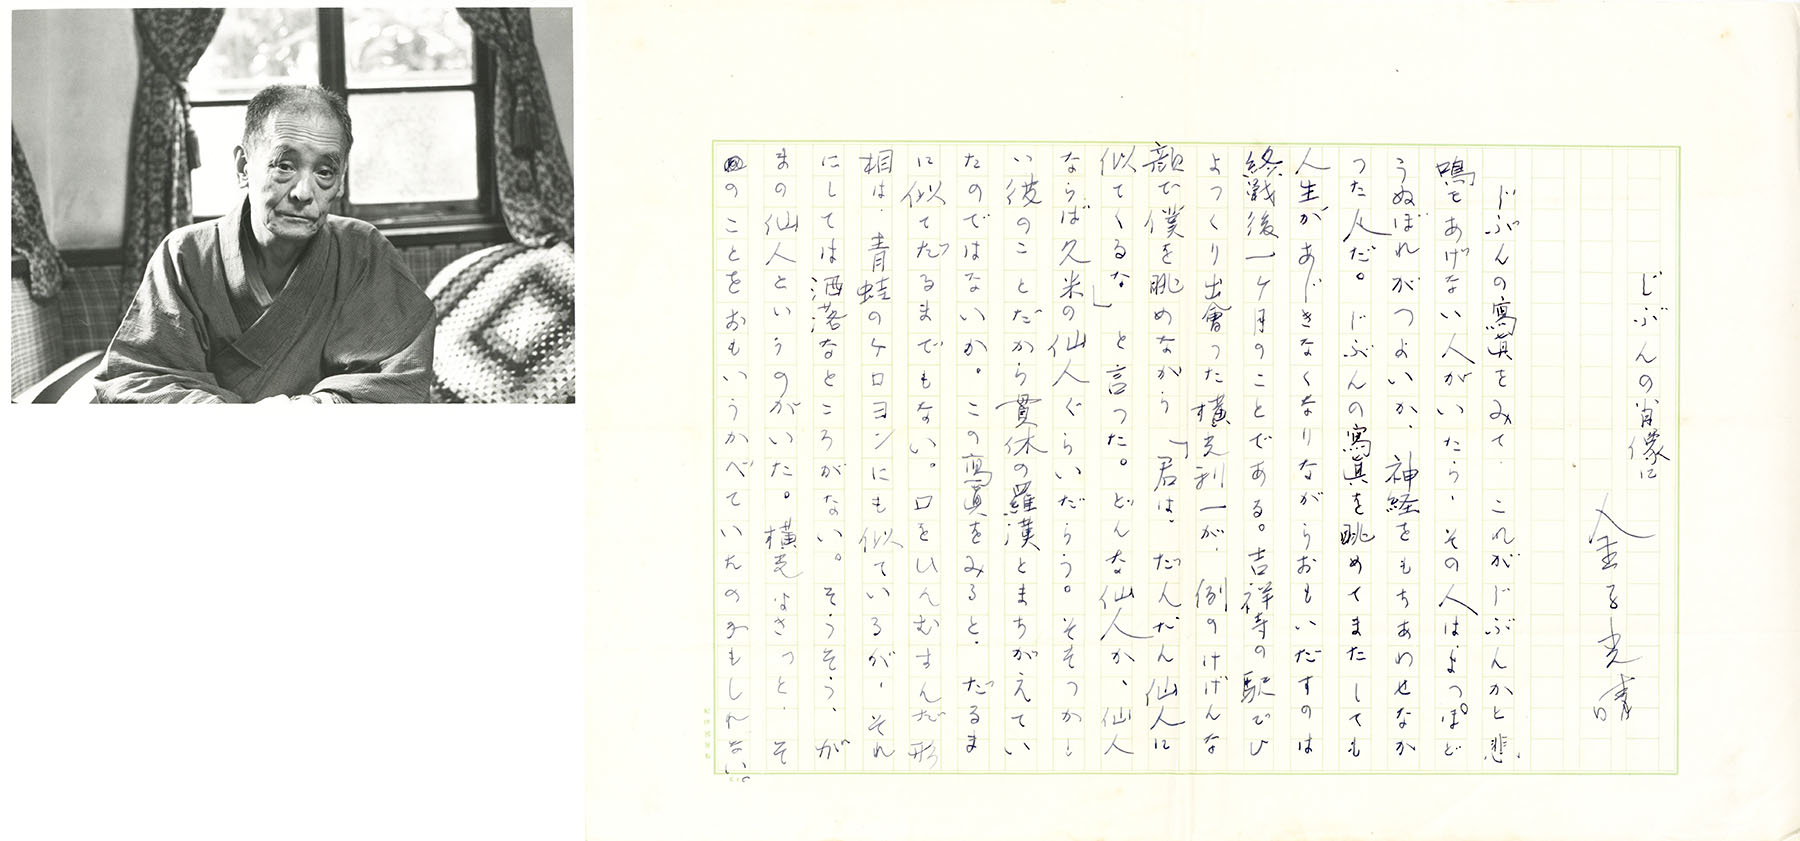 じぶんの肖像に
金子光晴
じぶんの寫眞をみて、これがじぶんかと悲
鳴をあげない人がいたら、その人はよっぽど
うぬぼれがつよいか、神経をもちあわせなか
った人だ。じぶんの寫眞を眺めてまたしても
人生があじきなくなりながらおもいだすのは
終戦後一ヶ月のことである。吉祥寺の駅でひ
よっくり出會った横光利一が、例のけげんな
顔で僕を眺めながら「君は、だんだん仙人に
似てくるな」と言った。どんな仙人か、仙人
ならば久米の仙人ぐらいだらう。そそつかし
い彼のことだから貫休の羅漢とまちがえてい
たのではないか。この寫眞をみると、だるま
に似てだるまでもない。口をひんむすんだ形
相は、青蛙のケロヨンにも似ているが、それ
にしては洒落なところがない。そうそう、が
まの仙人というのがいた。横光はきっと、そ
のことをおもいうかべていたのかもしれない。